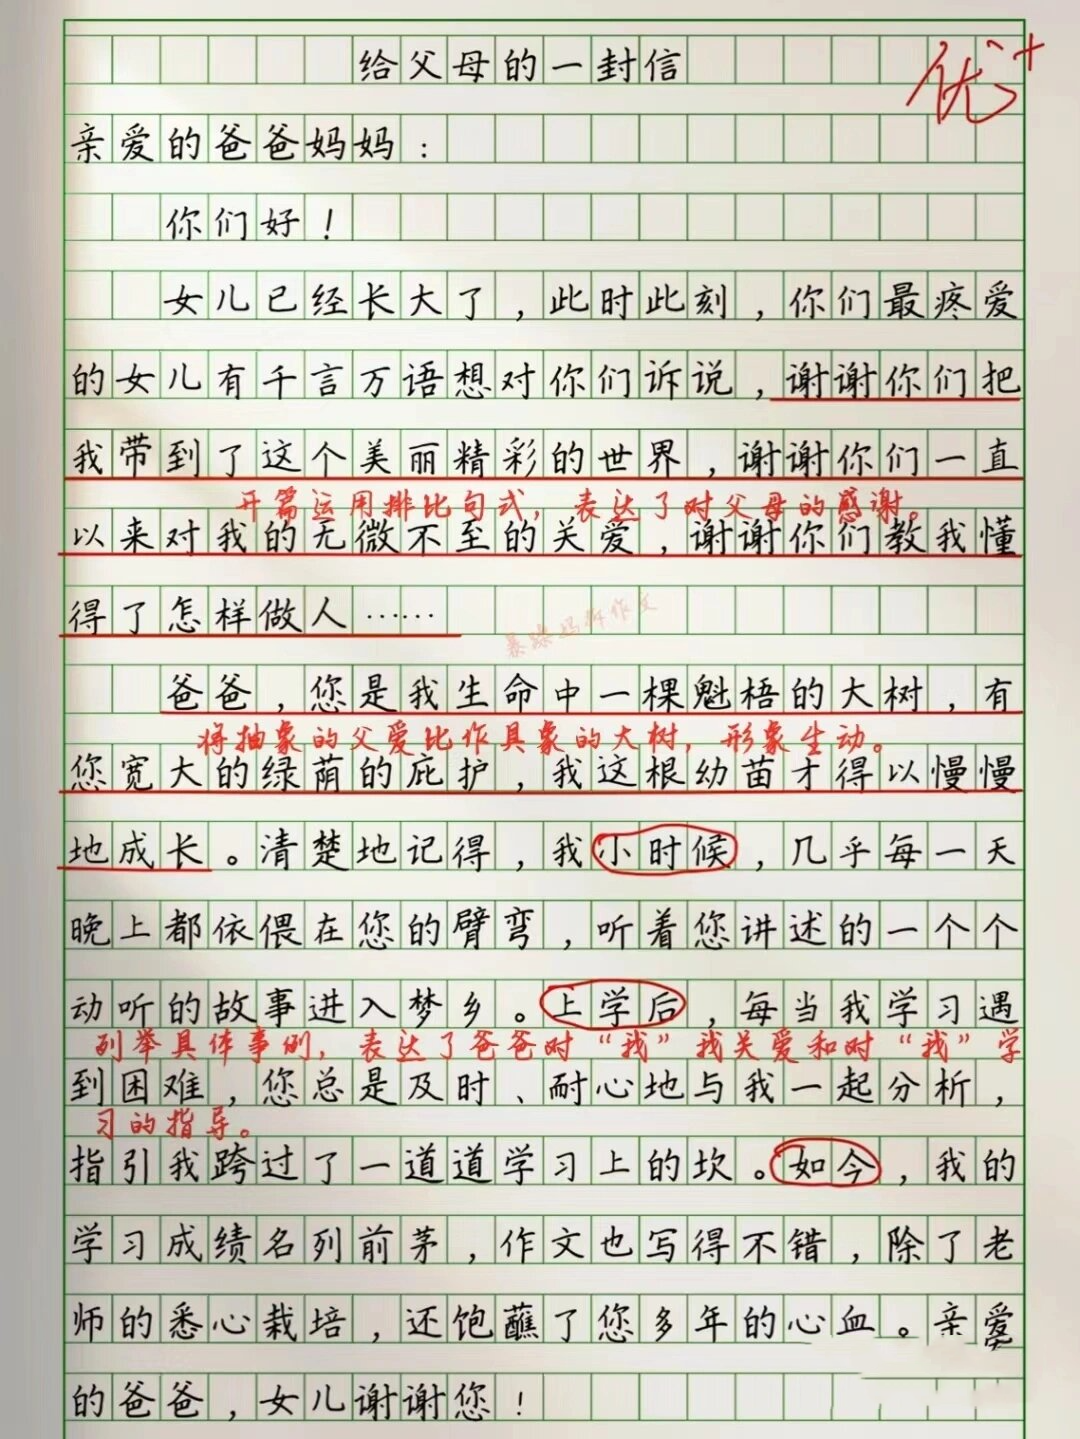 给父母的一封信
优+
亲爱的爸爸妈妈：
你们好！
女儿已经长大了，此时此刻，你们最疼爱
的女儿有千言万语想对你们诉说，谢谢你们把
我带到了这个美丽精彩的世界，谢谢你们一直
开篇运用排比句式，表达了对父母的感谢。
以来对我的无微不至的关爱，谢谢你们教我懂
得了怎样做人……
暴躁妈拆作文
爸爸，您是我生命中一棵魁梧的大树，有
将抽象的父爱比作具象的大树，形象生动。
您宽大的绿荫的庇护，我这根幼苗才得以慢慢
地成长。清楚地记得，我小时候，几乎每一天
晚上都依偎在您的臂弯，听着您讲述的一个个
动听的故事进入梦乡。上学后，每当我学习遇
列举具体事例，表达了爸爸对“我”我关爱和对“我”学
到困难，您总是及时、耐心地与我一起分析，
习的指导。
指引我跨过了一道道学习上的坎。如今，我的
学习成绩名列前茅，作文也写得不错，除了老
师的悉心栽培，还饱蘸了您多年的心血。亲爱
的爸爸，女儿谢谢您！